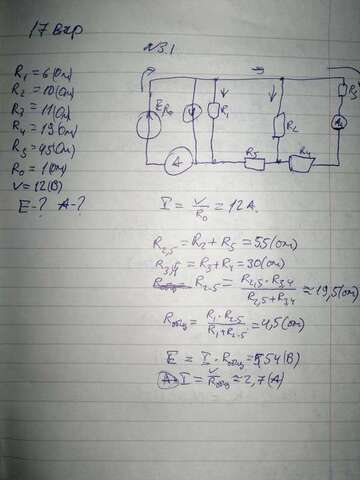 17 вар
№3.1
R₁ = 6 (Ом)
R₂ = 10 (Ом)
R₃ = 11 (Ом)
R₄ = 19 (Ом)
R₅ = 45 (Ом)
R₀ = 1 (Ом)
V = 12 (В)
E - ? A - ?
E R₀
V
R₁
R₂
R₃
A
R₅
R₄
I = V/R₀ = 12 А.
R₂,₅ = R₂ + R₅ = 55 (Ом)
R₃,₄ = R₃ + R₄ = 30 (Ом)
R₂₋₅ = R₂,₅ · R₃,₄ / R₂,₅ + R₃,₄ ≈ 19,5 (Ом)
Rобщ = R₁ · R₂₋₅ / R₁ + R₂₋₅ = 4,5 (Ом)
E = I · Rобщ = 54 (В)
I = V/Rобщ ≈ 2,7 (А)